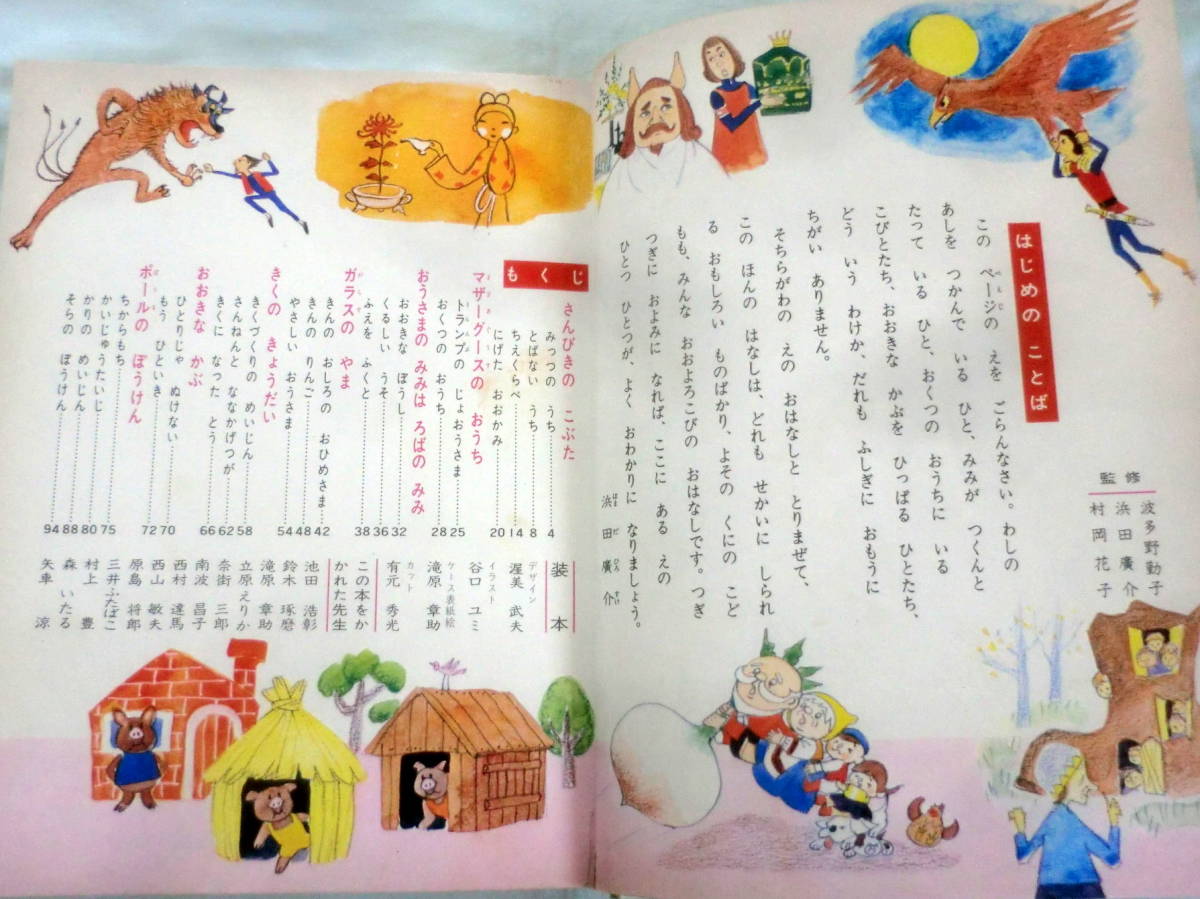 はじめの ことば
この ページの えを ごらんなさい。わしの
あしを つかんで いる ひと、みみが つくんと
たって いる ひと、おくつの おうちに いる
こびとたち、おおきな かぶを ひっぱる ひとたち、
どう いう わけか、だれも ふしぎに おもうに
ちがい ありません。
そちらがわの えの おはなしと とりまぜて、
この ほんの はなしは、どれも せかいに しられ
る おもしろい ものばかり、よその くにの こど
もも、みんな おおよろこびの おはなしです。つぎ
つぎに およみに なれば、ここに ある えの
ひとつ ひとつが、よく おわかりに なりましょう。
浜田廣介
はまだひろすけ
監修
波多野勤子
浜田廣介
村岡花子
もくじ
さんびきの こぶた
みっつの うち……4
とばない うち……8
ちえくらべ……14
にげた おおかみ……20
マザーグースの おうち
トランプの じょおうさま……25
おくつの おうち……28
おうさまの みみは ろばの みみ
おおきな ぼうし……32
くるしい うそ……36
ふえを ふくと……38
ガラスの やま
きんの おしろの おひめさま……42
きんの りんご……48
やさしい おうさま……54
きくの きょうだい
きくづくりの めいじん……58
さんねんと ななかげつが……62
きくに なった とう……66
おおきな かぶ
ひとりじゃ ぬけない……70
もう ひといき……72
ポールの ぼうけん
ちからもち……75
かいじゅうたいじ……80
かりの めいじん……88
そらの ぼうけん……94
装本
デザイン
渥美武夫
イラスト
谷口ユミ
ケース表紙絵
滝原章助
カット
有元秀光
この本をか
かれた先生
池田浩彰
鈴木琢磨
滝原章助
立原えりか
奈街三郎
南波昌子
西村達馬
西山敏夫
原島将郎
三井ふたばこ
村上豊
森いたる
矢車涼